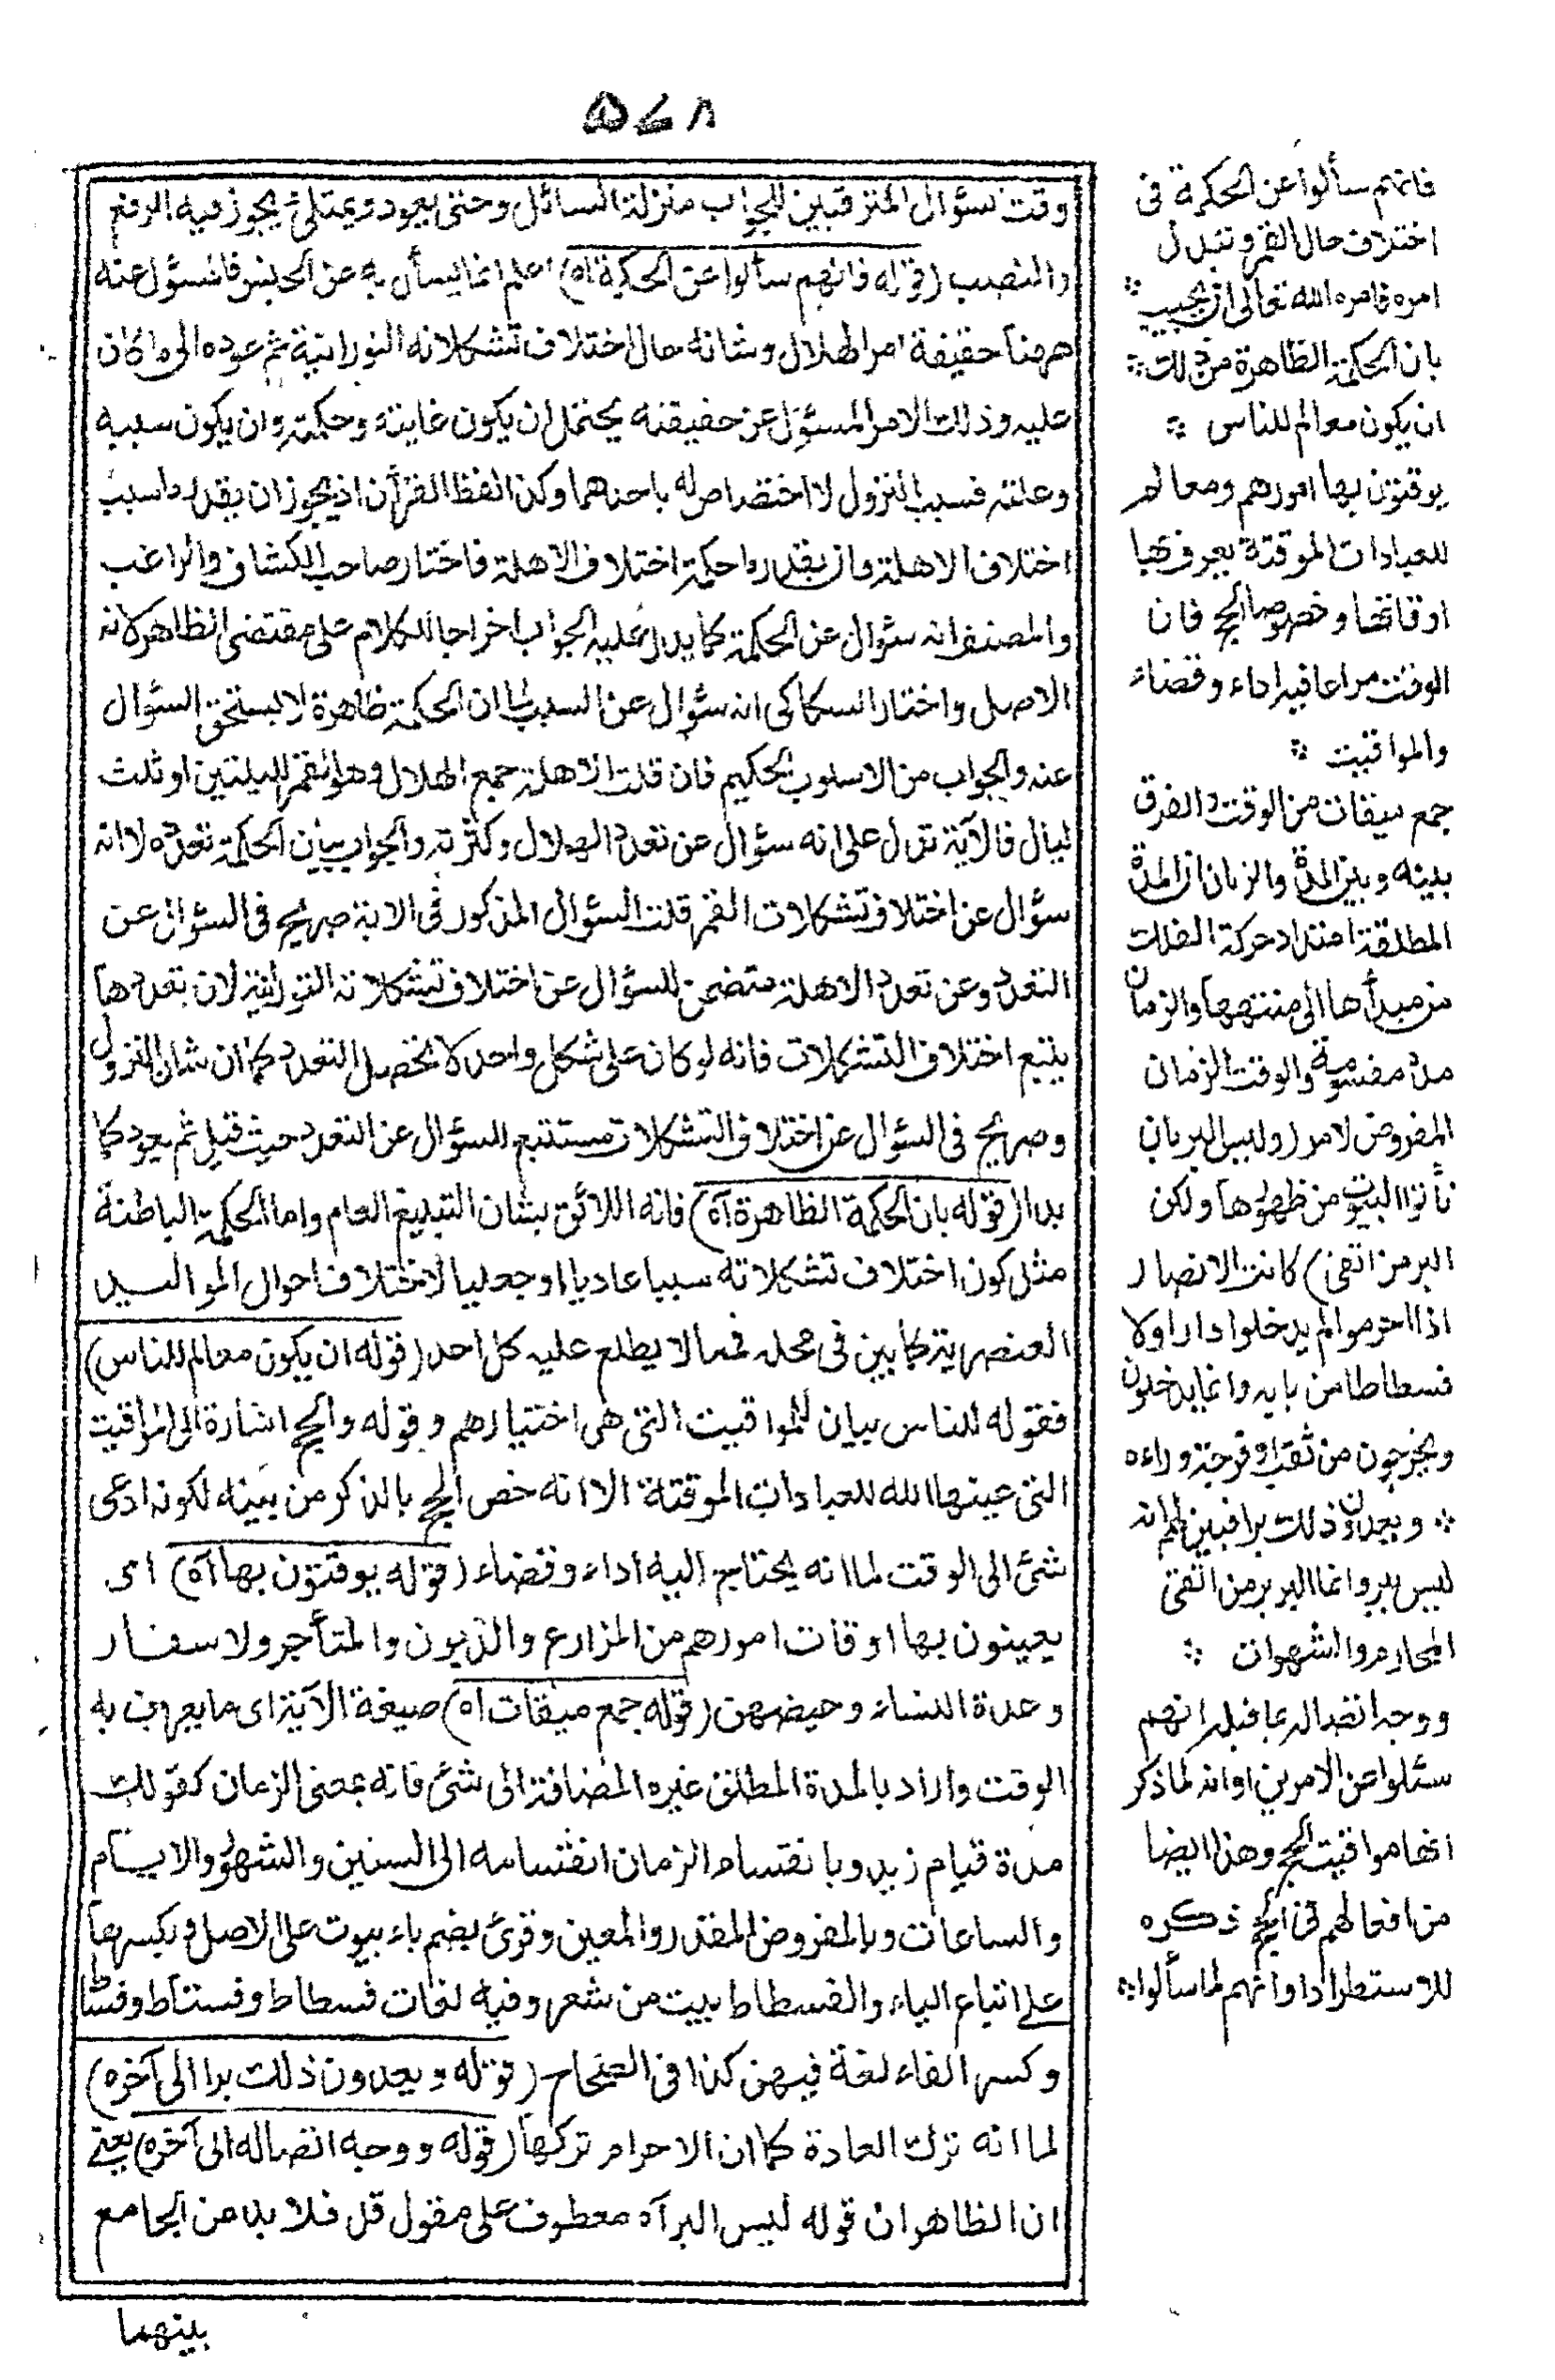 ٥٧٨
وقت سؤال المترقبين للجواب منزلة السائل وحتى يعود ويمتلئ يجوز فيه الرفع
والنصب (قوله فانهم سألوا عن الحكمة اه) اعلم انما يسأل به عن الجنس فالمسؤل عنه
ههنا حقيقة امر الهلال وشانه حال اختلاف تشكلاته النورانية ثم عوده الى ما كان
عليه وذلك الامر المسؤل عن حقيقته يحتمل ان يكون غايته وحكمته وان يكون سببه
وعلته فسبب النزول لا اختصاص له باحدهما وكذا لفظ القرأن اذ يجوز ان يقدر ما سبب
اختلاف الاهلة وان يقدر ما حكمة اختلاف الاهلة فاختار صاحب الكشاف والراغب
والمصنف انه سؤال عن الحكمة كما يدل عليه الجواب اخراجا للكلام على مقتضى الظاهر لانه
الاصل واختار السكاكى انه سؤال عن السبب لما ان الحكمة ظاهرة لا يستحق السؤال
عنه والجواب من الاسلوب الحكيم فان قلت الاهلة جمع الهلال وهو القمر لليلتين او ثلث
ليال فالآية تدل على انه سؤال عن تعدد الهلال وكثرته والجواب ببيان الحكمة تعدده لا انه
سؤال عن اختلاف تشكلات القمر قلت السؤال المذكور فى الاية صريح فى السؤال عن
التعدد وعن تعدد الاهلة متضمن للسؤال عن اختلاف تشكلاته النورانية لان تعددها
يتبع اختلاف التشكلات فانه لو كان على شكل واحد لا يحصل التعدد كما ان شان النزول
وصريح فى السؤال عن اختلاف التشكلات مستتبع للسؤال عن التعدد حيث قيل ثم يعود كما
بدا (قوله بان الحكمة الظاهرة آه) فانه اللائق بشان التبليغ العام واما الحكمة الباطنة
مثل كون اختلاف تشكلاته سببا عاديا او جعليا لاختلاف احوال المواليد
العنصرية كما بين فى محله فمما لا يطلع عليه كل احد (قوله ان يكون معالم للناس)
فقوله للناس بيان للمواقيت التى هى اختيارهم وقوله والحج اشارة الى المواقيت
التى عينها الله للعبادات الموقتة الا انه خص الحج بالذكر من بينه لكونه ادعى
شئ الى الوقت لما انه يحتاج اليه اداء وقضاء (قوله يوقتون بها آه) اى
يعينون بها اوقات امورهم من المزارع والديون والمتأجر ولاسفار
وعدة النساء وحيضهن (قوله جمع ميقات اه) صيغة الآية اى ما يعرف به
الوقت واراد بالمدة المطلق غيره المضافة الى شئ فانه بمعنى الزمان كقولك
مدة قيام زيد وبانقسام الزمان انقسامه الى السنين والشهور والايام
والساعات وبالمفروض المقدر والمعين وقرئ بضم باء بيوت على الاصل وبكسرها
على اتباع الياء والفسطاط بيت من شعر وفيه لغات فسطاط وفستاط وفساط
وكسر الفاء لغة فيهن كذا فى الصحاح (قوله ويعدون ذلك برا الى آخره)
لما انه ترك العادة كما ان الاحرام تركها (قوله ووجه اتصاله الى آخره) يعنى
ان الظاهر ان قوله ليس البر آه معطوف على مقول قل فلا بد من الجامع
بينهما
فانهم سألوا عن الحكمة فى
اختلاف حال القمر وتبدل
امره فامره الله تعالى ان يجيب
بان الحكمة الظاهرة من ذلك
ان يكون معالم للناس
يوقتون بها امورهم ومعالم
للعبادات الموقتة يعرف بها
اوقاتها وخصوصا الحج فان
الوقت مراعا فيه اداء وقضاء
والمواقيت
جمع ميقات من الوقت والفرق
بينه وبين المدة والزمان ان المدة
المطلقة امتداد حركة الفلك
من مبدأها الى منتهاها والزمان
مدة مقسومة والوقت الزمان
المفروض لامر (وليس البر بان
تأتوا البيوت من ظهورها ولكن
البر من اتقى) كانت الانصار
اذا احرموا لم يدخلوا دارا ولا
فسطاطا من بابه وانما يدخلون
ويخرجون من ثقب او فرجة وراءه
ويعدون ذلك برا فبين لهم انه
ليس ببر وانما البر بر من اتقى
المحارم والشهوات
ووجه اتصاله بما قبله انهم
سئلوا عن الامرين او انه لما ذكر
انها مواقيت الحج وهذا ايضا
من افعالهم فى الحج ذكره
للاستطراد او انهم لما سألوا